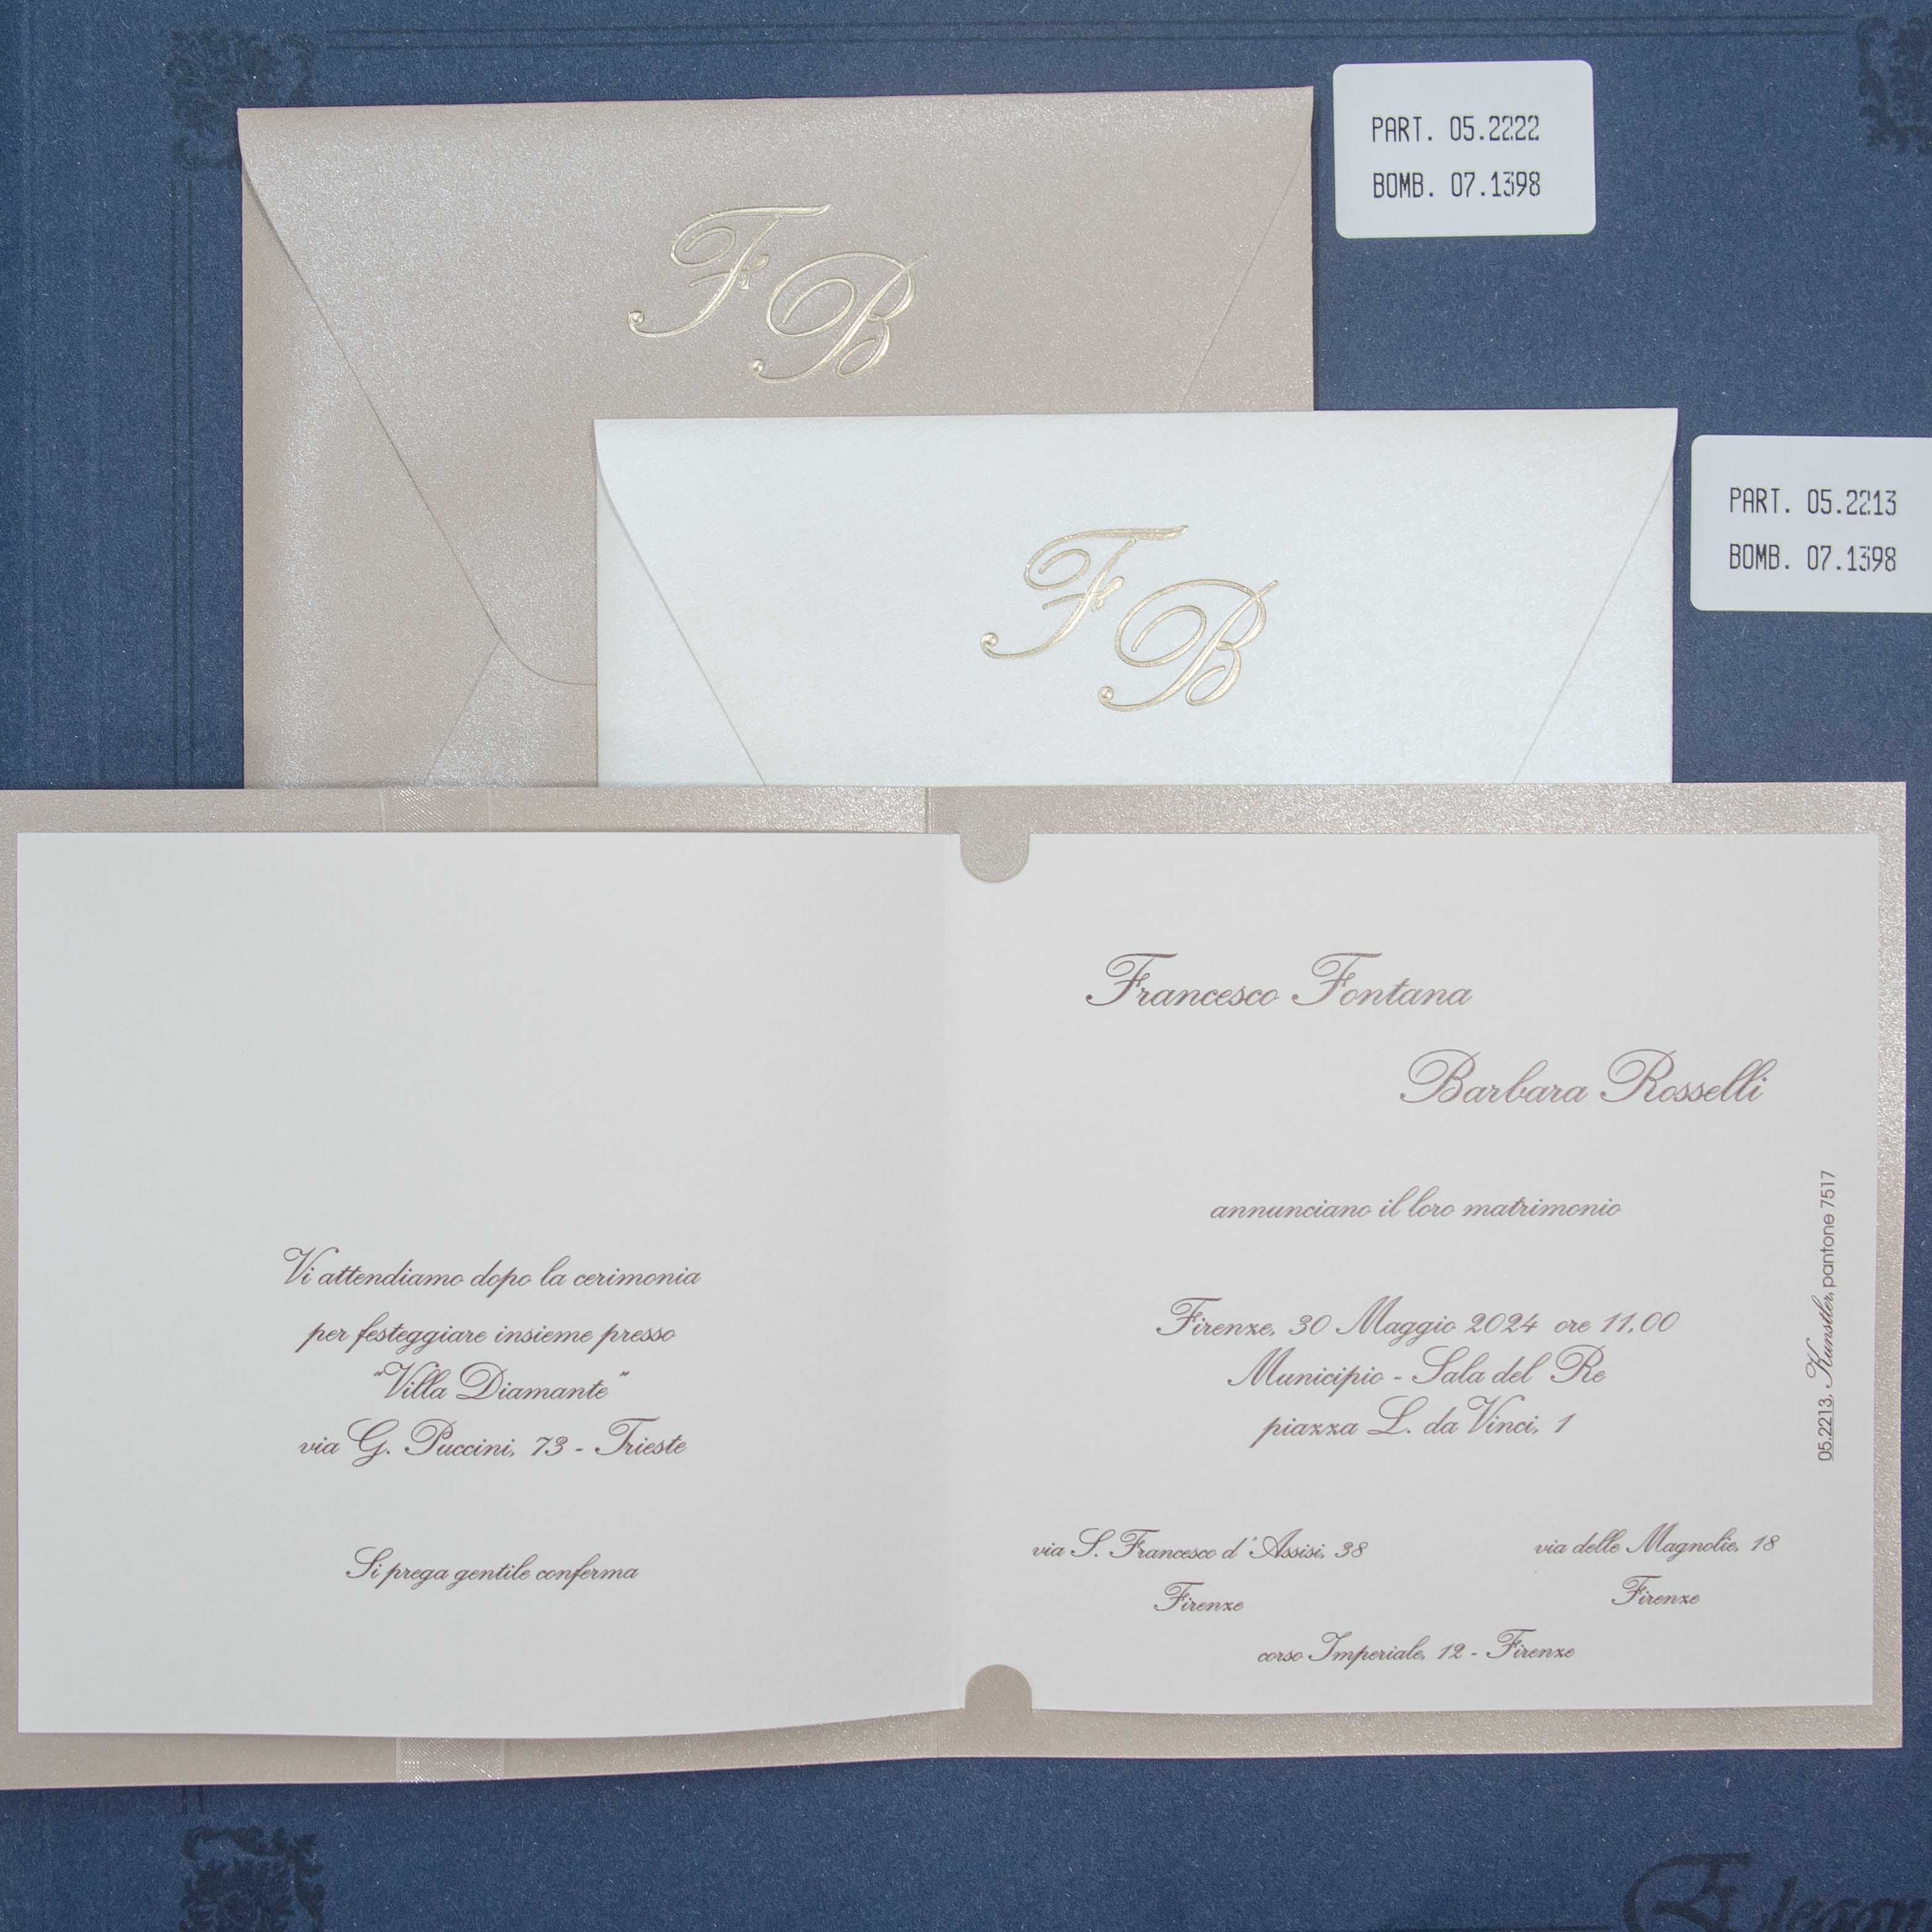 PART. 05.2222
BOMB. 07.1398
F B
PART. 05.2213
BOMB. 07.1398
F B
Vi attendiamo dopo la cerimonia
per festeggiare insieme presso
"Villa Diamante"
via G. Puccini, 73 - Trieste
Si prega gentile conferma
Francesco Fontana
Barbara Rosselli
annunciano il loro matrimonio
Firenze, 30 Maggio 2024 ore 11,00
Municipio - Sala del Re
piazza L. da Vinci, 1
via S. Francesco d'Assisi, 38
Firenze
via delle Magnolie, 18
Firenze
corso Imperiale, 12 - Firenze
05.2213, Kunstler, pantone 7517